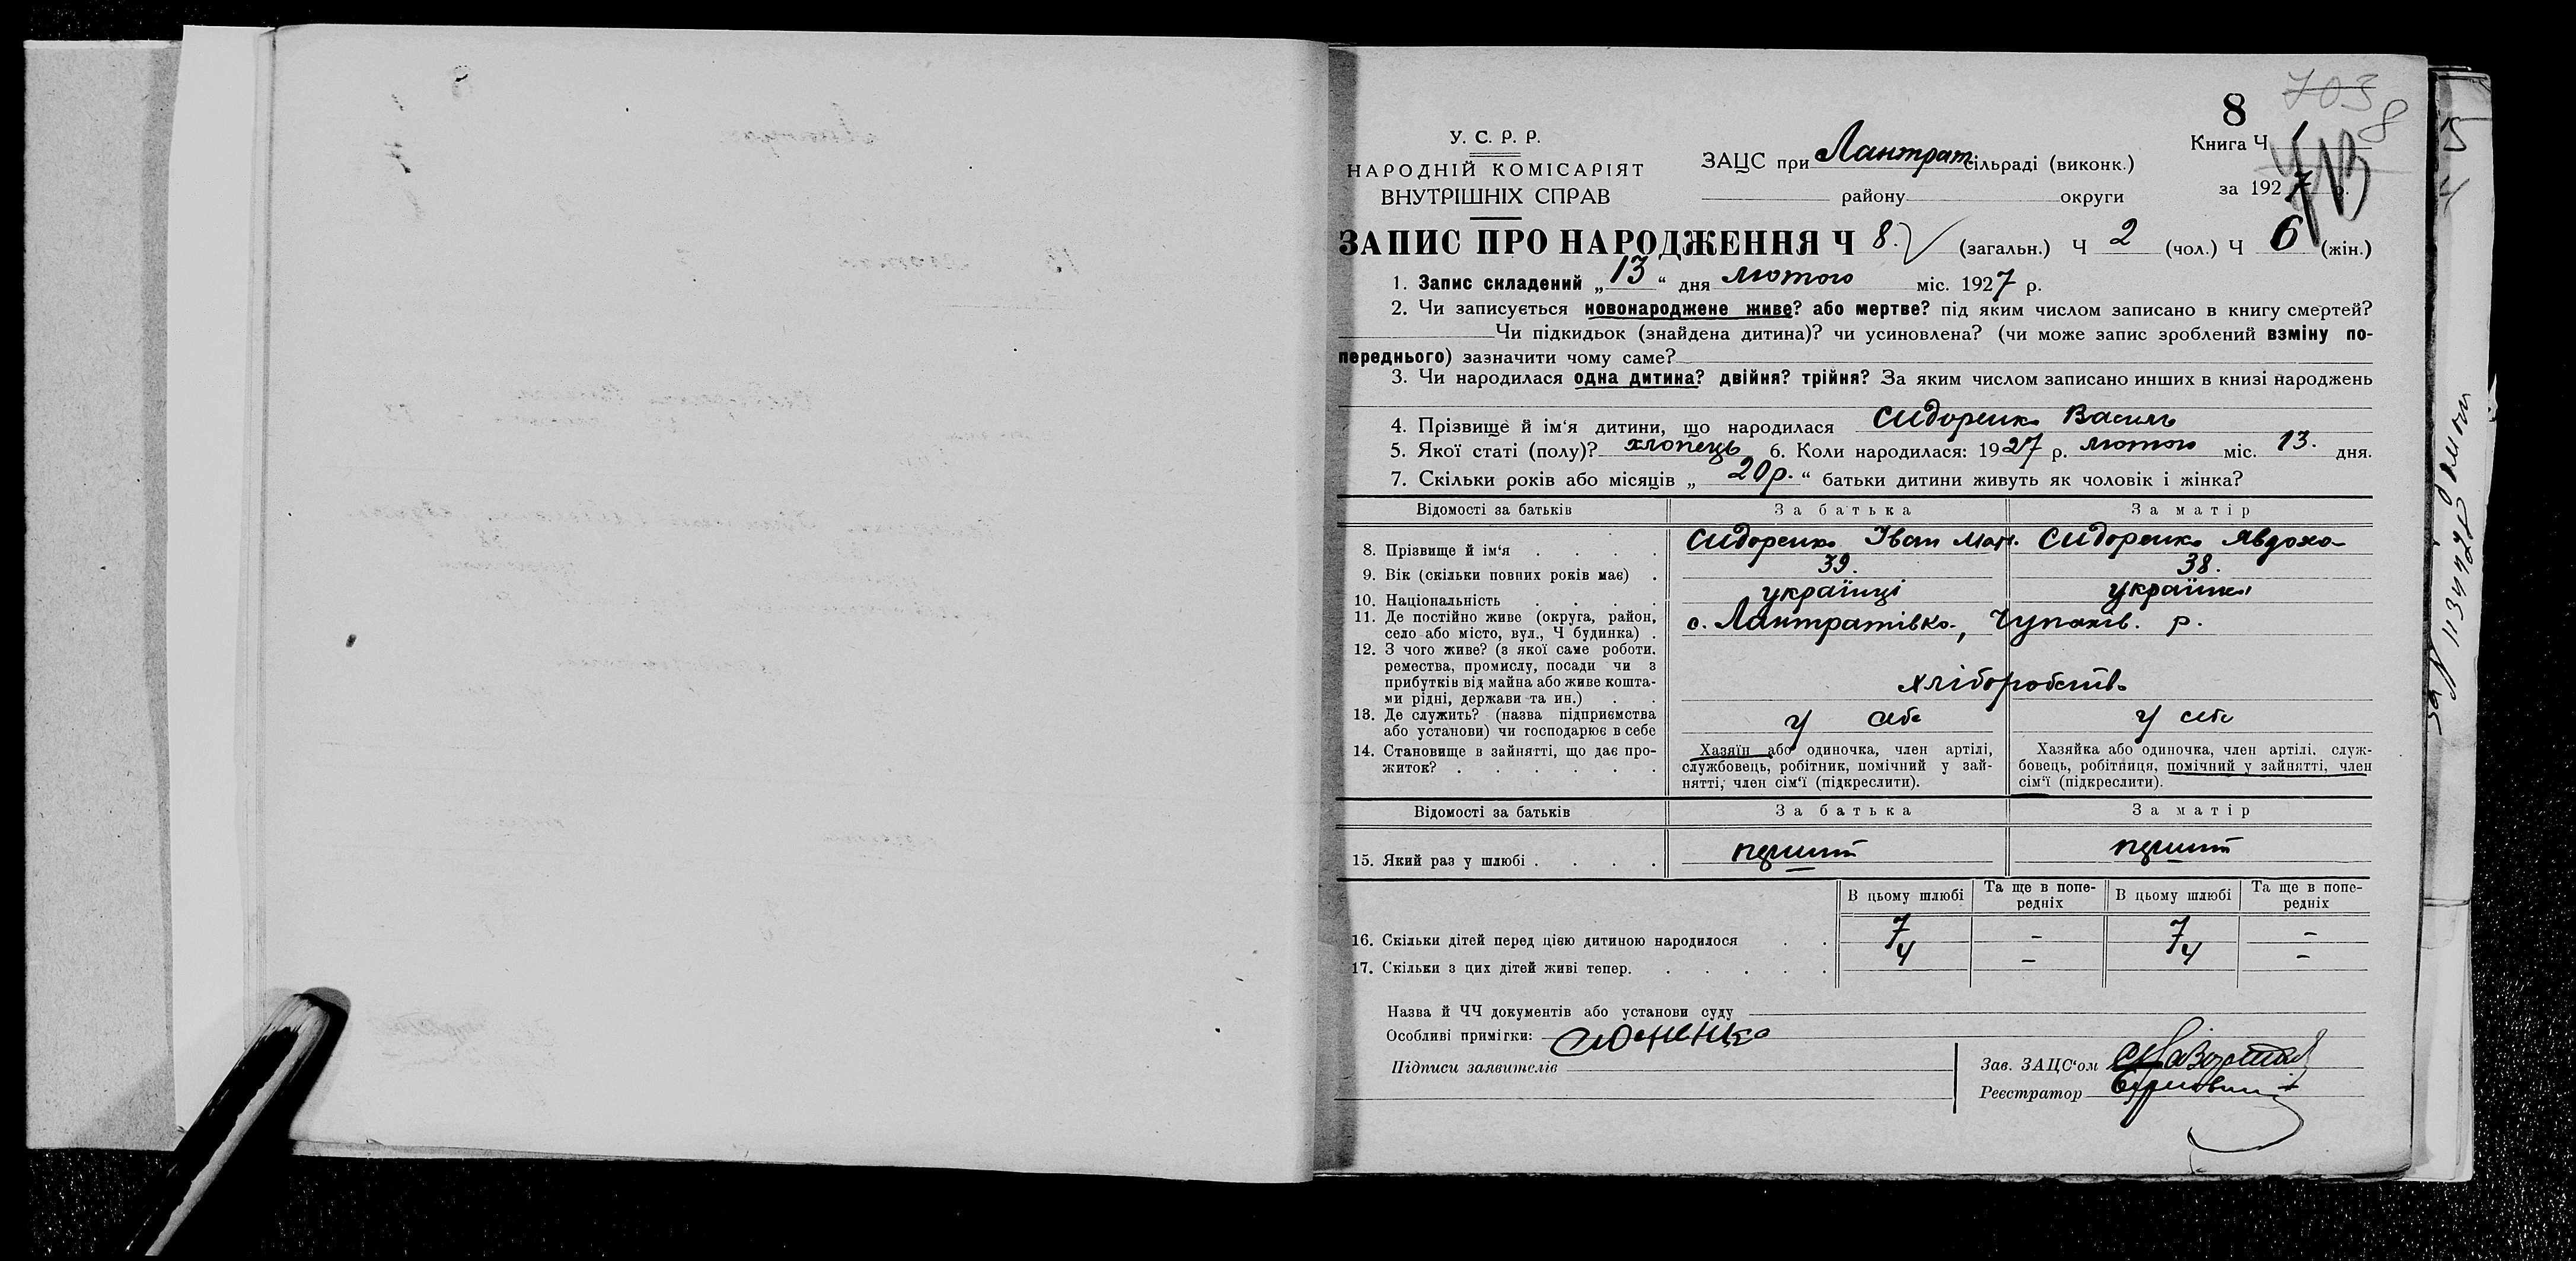 703
8
8
У. С. Р. Р.
НАРОДНІЙ КОМІСАРІЯТ
ВНУТРІШНІХ СПРАВ
ЗАЦС при Лантрат сільраді (виконк.)
району округи
Книга Ч 1
за 1927 р.
ЗАПИС ПРО НАРОДЖЕННЯ Ч 8. (загальн.) Ч 2 (чол.) Ч 6 (жін.)
1. Запис складений „ 13 “ дня лютого міс. 1927 р.
2. Чи записується новонароджене живе? або мертве? під яким числом записано в книгу смертей?
Чи підкидьок (знайдена дитина)? чи усиновлена? (чи може запис зроблений взміну по-
переднього) зазначити чому саме?
3. Чи народилася одна дитина? двійня? трійня? За яким числом записано инших в книзі народжень
4. Прізвище й ім‘я дитини, що народилася Сидоренко Василь
5. Якої статі (полу)? хлопець 6. Коли народилася: 1927 р. лютого міс. 13. дня.
7. Скільки років або місяців „ 20 р. “ батьки дитини живуть як чоловік і жінка?
Відомості за батьків За батька За матір
8. Прізвище й ім‘я . . . . Сидоренко Іван Мат. Сидоренко Явдоха
9. Вік (скільки повних років має) . 39. 38.
10. Національність . . . . українці українка
11. Де постійно живе (округа, район,
село або місто, вул., Ч будинка) . с. Лантратівка, Чупахів. р.
12. З чого живе? (з якої саме роботи,
ремества, промислу, посади чи з
прибутків від майна або живе кошта-
ми рідні, держави та ин.) . . хліборобство
13. Де служить? (назва підприємства
або установи) чи господарює в себе у себе у себе
14. Становище в зайнятті, що дає про-
житок? . . . . . .
Хазяїн або одиночка, член артілі,
службовець, робітник, помічний у зай-
нятті, член сім‘ї (підкреслити).
Хазяйка або одиночка, член артілі, служ-
бовець, робітниця, помічний у зайнятті, член
сім‘ї (підкреслити).
Відомості за батьків За батька За матір
15. Який раз у шлюбі . . . . перший перший
В цьому шлюбі Та ще в попе-
редніх В цьому шлюбі Та ще в попе-
редніх
16. Скільки дітей перед цією дитиною народилося . . 7 - 7 -
17. Скільки з цих дітей живі тепер. . . . . . 4 - 4 -
Назва й ЧЧ документів або установи суду
Особливі примігки:
Підписи заявителів
Зав. ЗАЦС‘ом
Реєстратор